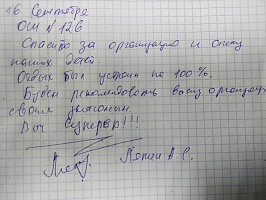 16 Сентября
ОШ N 126
Спасибо за организацию и опеку
наших детей.
Отдых был устроен на 100%.
Будем рекомендовать вашу организац
своим знакомым.
Вы Супер!!!